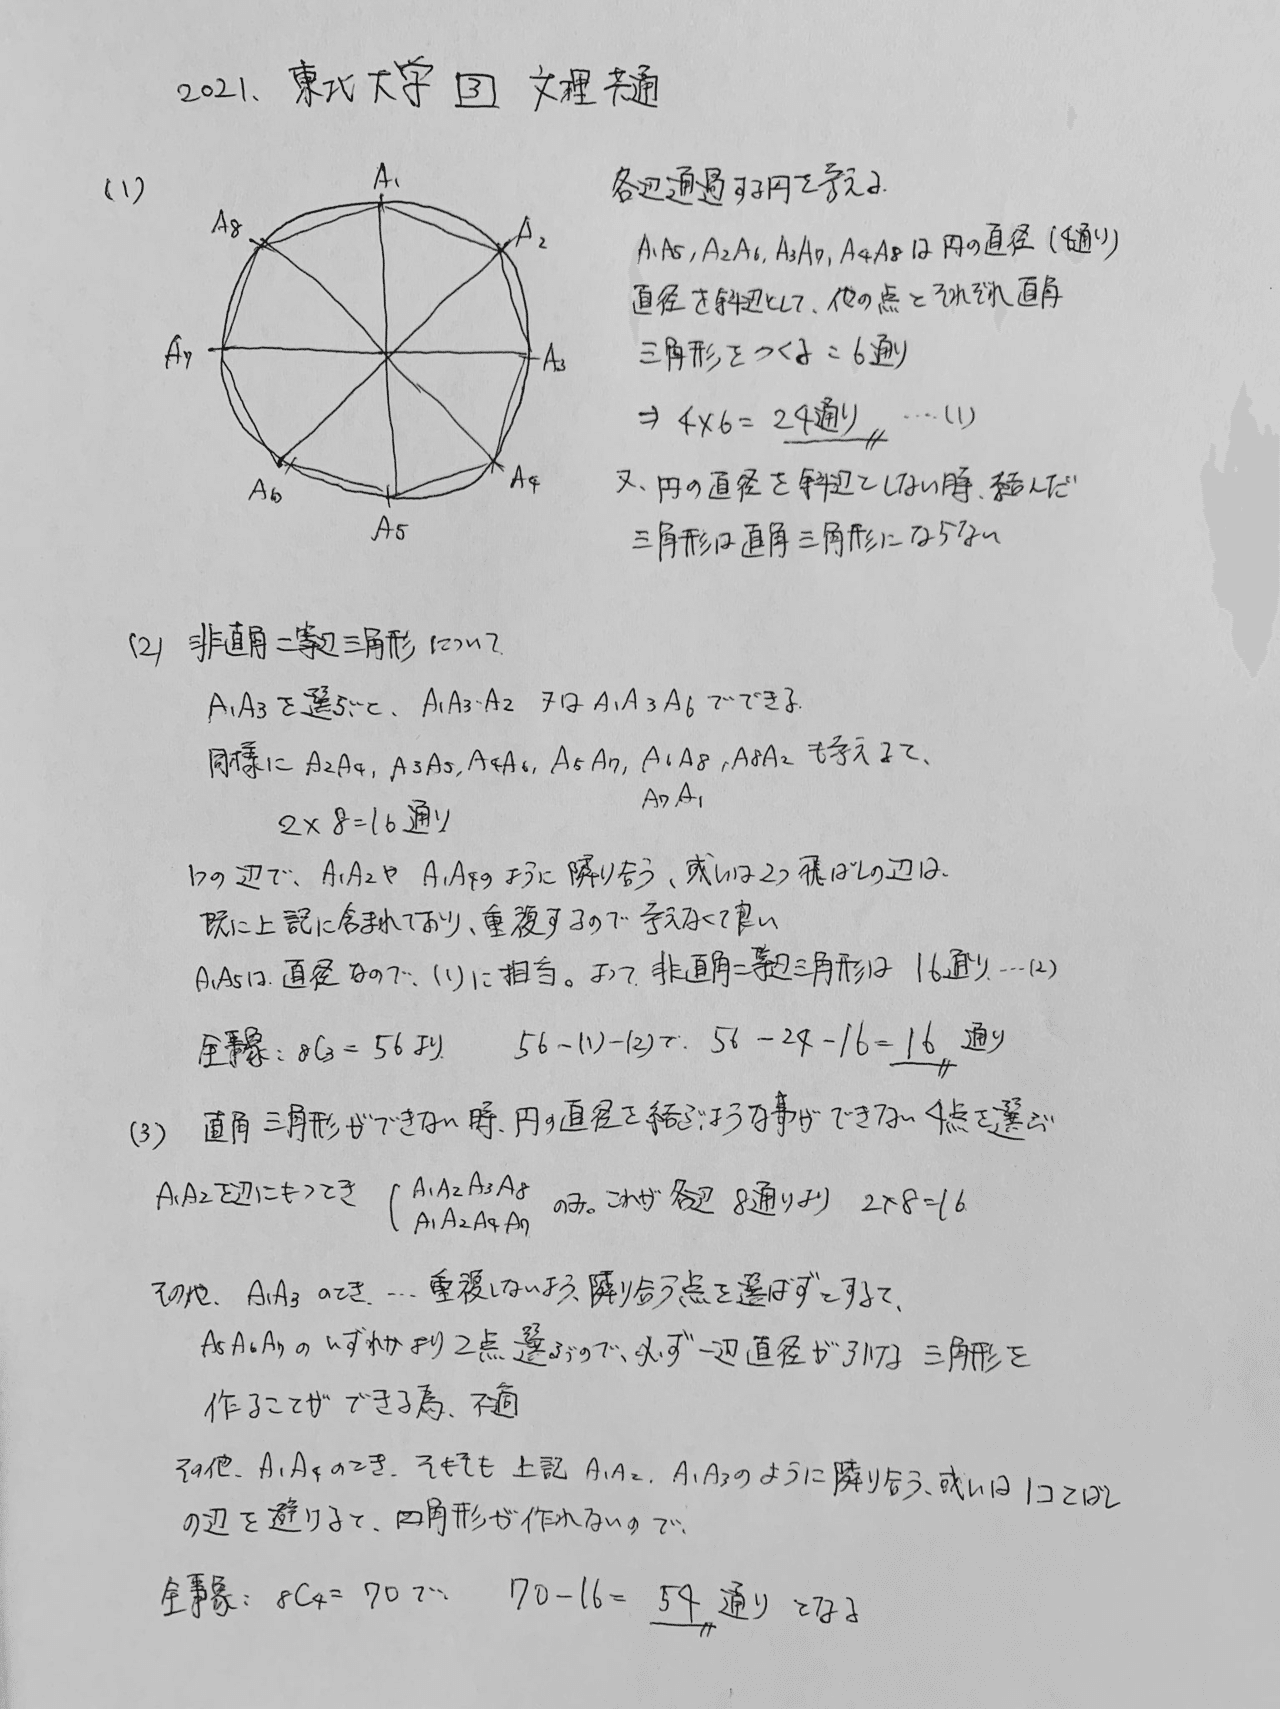 2021. 東北大学 3 文理共通
(1)
A1
A2
A3
A4
A5
A6
A7
A8
各辺通過する円を考える.
A1A5, A2A6, A3A7, A4A8は円の直径(4通り)
直径を斜辺として、他の点とそれぞれ直角
三角形をつくる=6通り
⇒ 4×6= 24通り ····(1)
又、円の直径を斜辺としない時、結んだ
三角形は直角三角形にならない
(2) 非直角二等辺三角形について
A1A3を選ぶと、A1A3A2 又はA1A3A6でできる.
同様にA2A4, A3A5, A4A6, A5A7, A6A8, A8A2も考えて、
A7A1
2×8=16通り
1つの辺で、A1A2やA1A4のように隣り合う、或いは2つ飛ばしの辺は、
既に上記に含まれており、重複するので考えなくて良い
A1A5は直径なので、(1)に相当。よって非直角二等辺三角形は16通り.···(2)
全事象:8C3=56より 56-(1)-(2)で. 56-24-16=16 通り
(3) 直角三角形ができない時、円の直径を結ぶような事ができない4点を選ぶ
A1A2を辺にもつとき ( A1A2A3A8
A1A2A4A7 のみ。これが各辺8通りより 2×8=16
その他、A1A3のとき、···重複しないよう、隣り合う点を選ばずとすると、
A5A6A7のいずれかより2点選ぶので、必ず一辺直径が引ける三角形を
作ることができる為、不適
その他、A1A4のとき、そもそも上記A1A2, A1A3のように隣り合う、或いは1コとばし
の辺を避けると、四角形が作れないので、
全事象:8C4=70で 70-16= 54 通りとなる